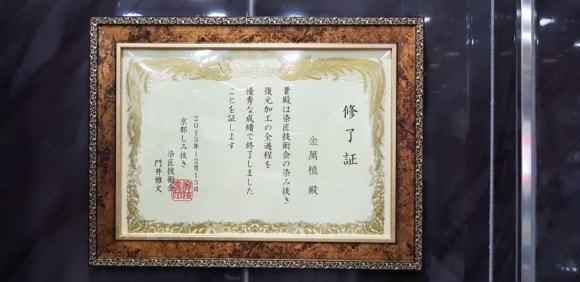 修了証
金萬植 殿
貴殿は染匠技術会の染み抜き
復元加工の全過程を
優秀な成績で終了しました
ことを証します
2015年12月13日
京都しみ抜き
染匠技術会
門井雅文